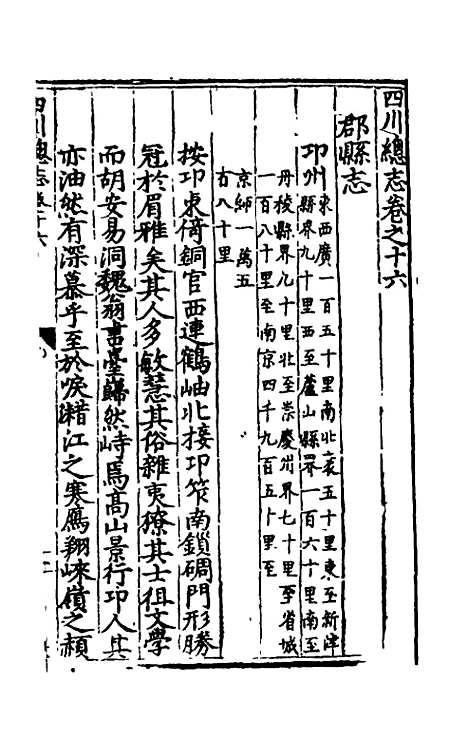 四川總志卷之十六
郡縣志
卭州
東西廣一百五十里南北袤五十里東至新津
縣界九十里西至蘆山縣界一百六十里南至
丹稜縣界九十里北至崇慶州界七十里至省城
一百八十里至南京四千九百五十里至
京師一萬五
百八十里
按卭東倚銅官西連鶴岫北接卭笮南鎖碉門形勝
冠於眉雅矣其人多敏慧其俗雜夷獠其士徂文學
而胡安易洞魏翁書臺巋然峙焉高山景行卭人其
亦油然有深慕乎至於唳湘江之寒鴈翔崍嶺之赪
四川總志卷十六